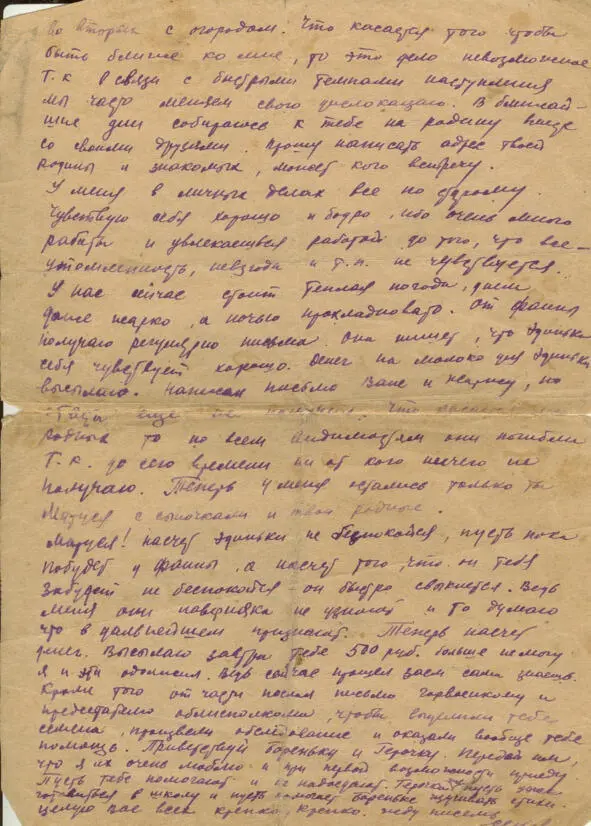 во вторых с огородам. Что касается того чтобы
быть ближе ко мне, то это дело невозможное
Т.к. в связи с быстрыми темпами наступления
мы часто меняем свою дислокацию. В ближай-
шие дни собираюсь к тебе на родину
со своими друзьями. Прошу написать адрес твоей
родины и знакомых, может кого встречу.
У меня в личных делах все по старому.
Чувствую себя хорошо и бодро, ибо очень много
работы и увлекаешься работой до того, что все
утомленность, невзгоды и т.п. не чувствуется.
У нас сейчас стоит теплая погода, днем
даже жарко, а ночью прохладновато. От Фаины
получаю регулярно письма. Она пишет, что Эдинька
себя чувствует хорошо. Денег на молоко для Эдиньки
высылаю. Написал письмо Вале и, но
еще не. Что касается
родных то по всем видимостям они погибли
Т.к. до сего времени ни от кого ничего не
получаю. Теперь у меня остались только ты
Маруся с сыночками и твои родные.
Маруся! насчет Эдиньки не безпокойся, пусть пока
побудет у Фаины, а насчет того, что он тебя
забудет не беспокойся - он быстро свыкнется. Ведь
меня они наверняка не узнают и то думаю
что в дальнейшем признают. Теперь насчет
денег. Высылаю завтра тебе 500 руб. больше не могу
я и эти одолжил. Ведь сейчас прошел заем сама знаешь.
Кроме того от части послал письмо горвоенкому и
председателю облисполкома, чтобы выделили тебе
семена, произвели обследование и оказали вообще тебе
помощь. Приветствуй Бореньку и Герочку. Передай им,
что я их очень люблю и при первой возможности приеду
Пусть тебе помогают и не надоедают. Герочка пусть уже
готовится в школу и пусть помогает Бореньке изучивать стихи.
целую вас всех крепко, крепко. жду писем